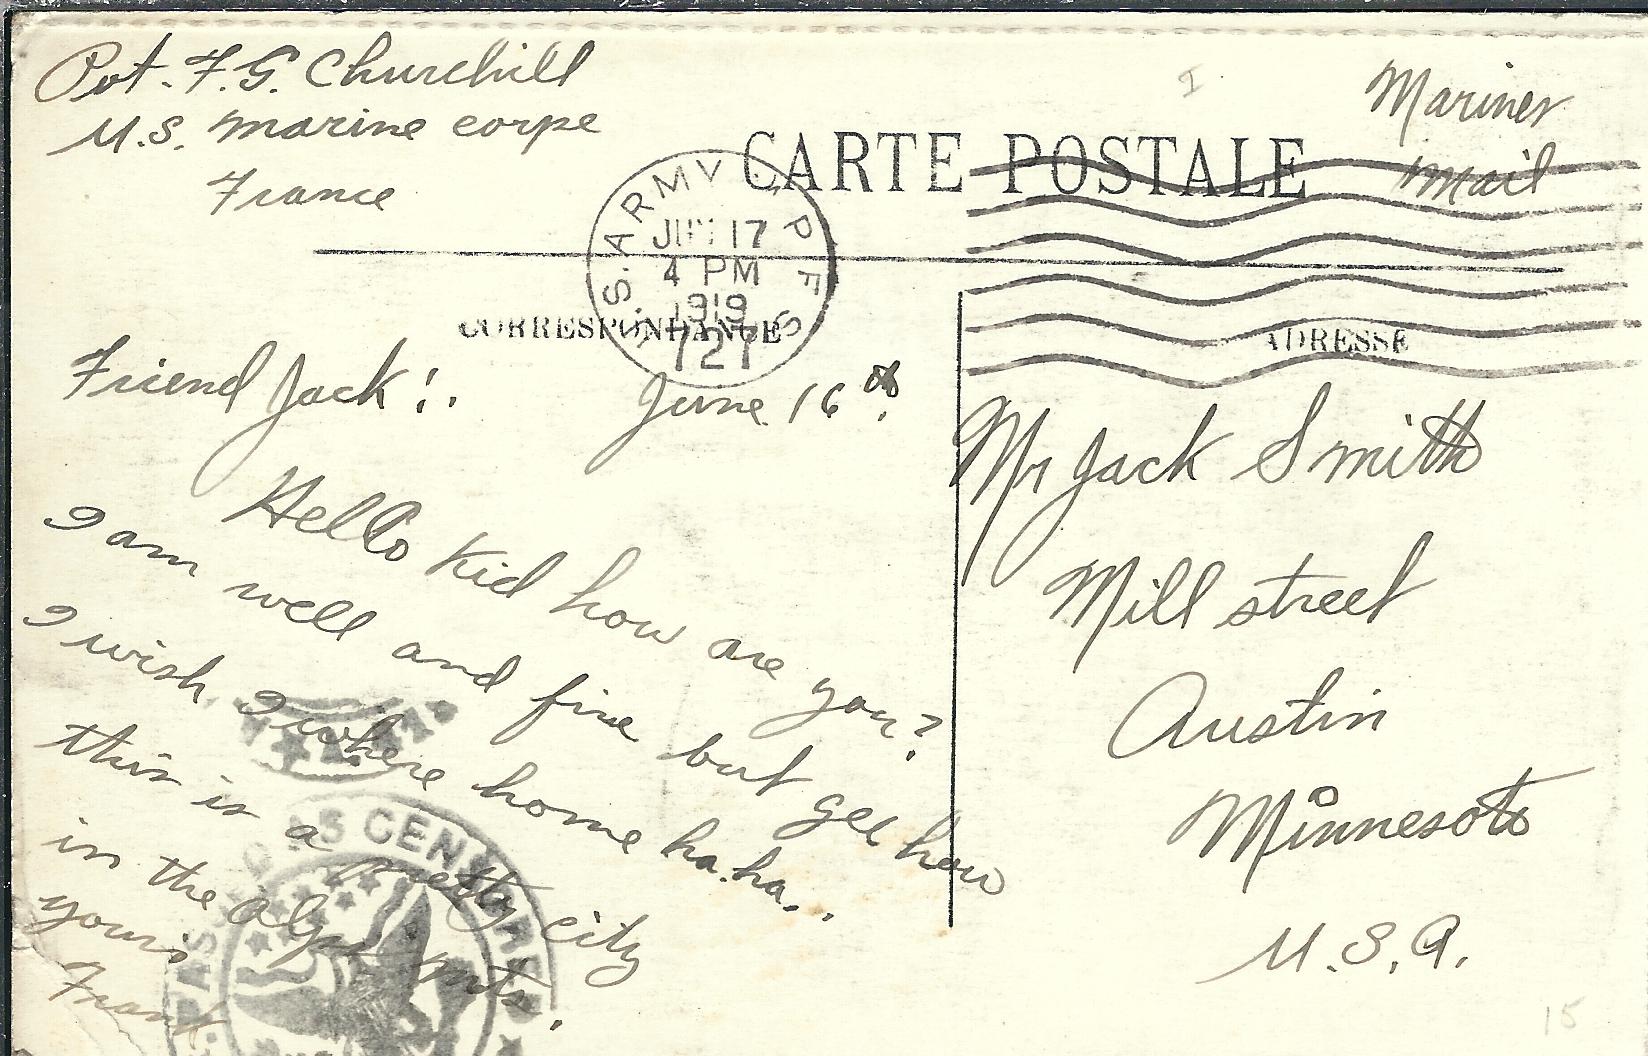 Pvt. F. G. Churchill
U.S. marine corpe
France
Mariner
mail
CARTE POSTALE
U.S. ARMY M.P.E.S.
JUN 17
4 PM
1919
727
CORRESPONDANCE
ADRESSE
Friend Jack!. June 16th.
Hello Kid how are you?
I am well and fine but gee how
I wish I where home ha. ha..
this is a pretty city
in the alps mts.
yours
Frank
Mr Jack Smith
Mill street
Austin
Minnesota
U.S.A.
PASSED AS CENSORED
15